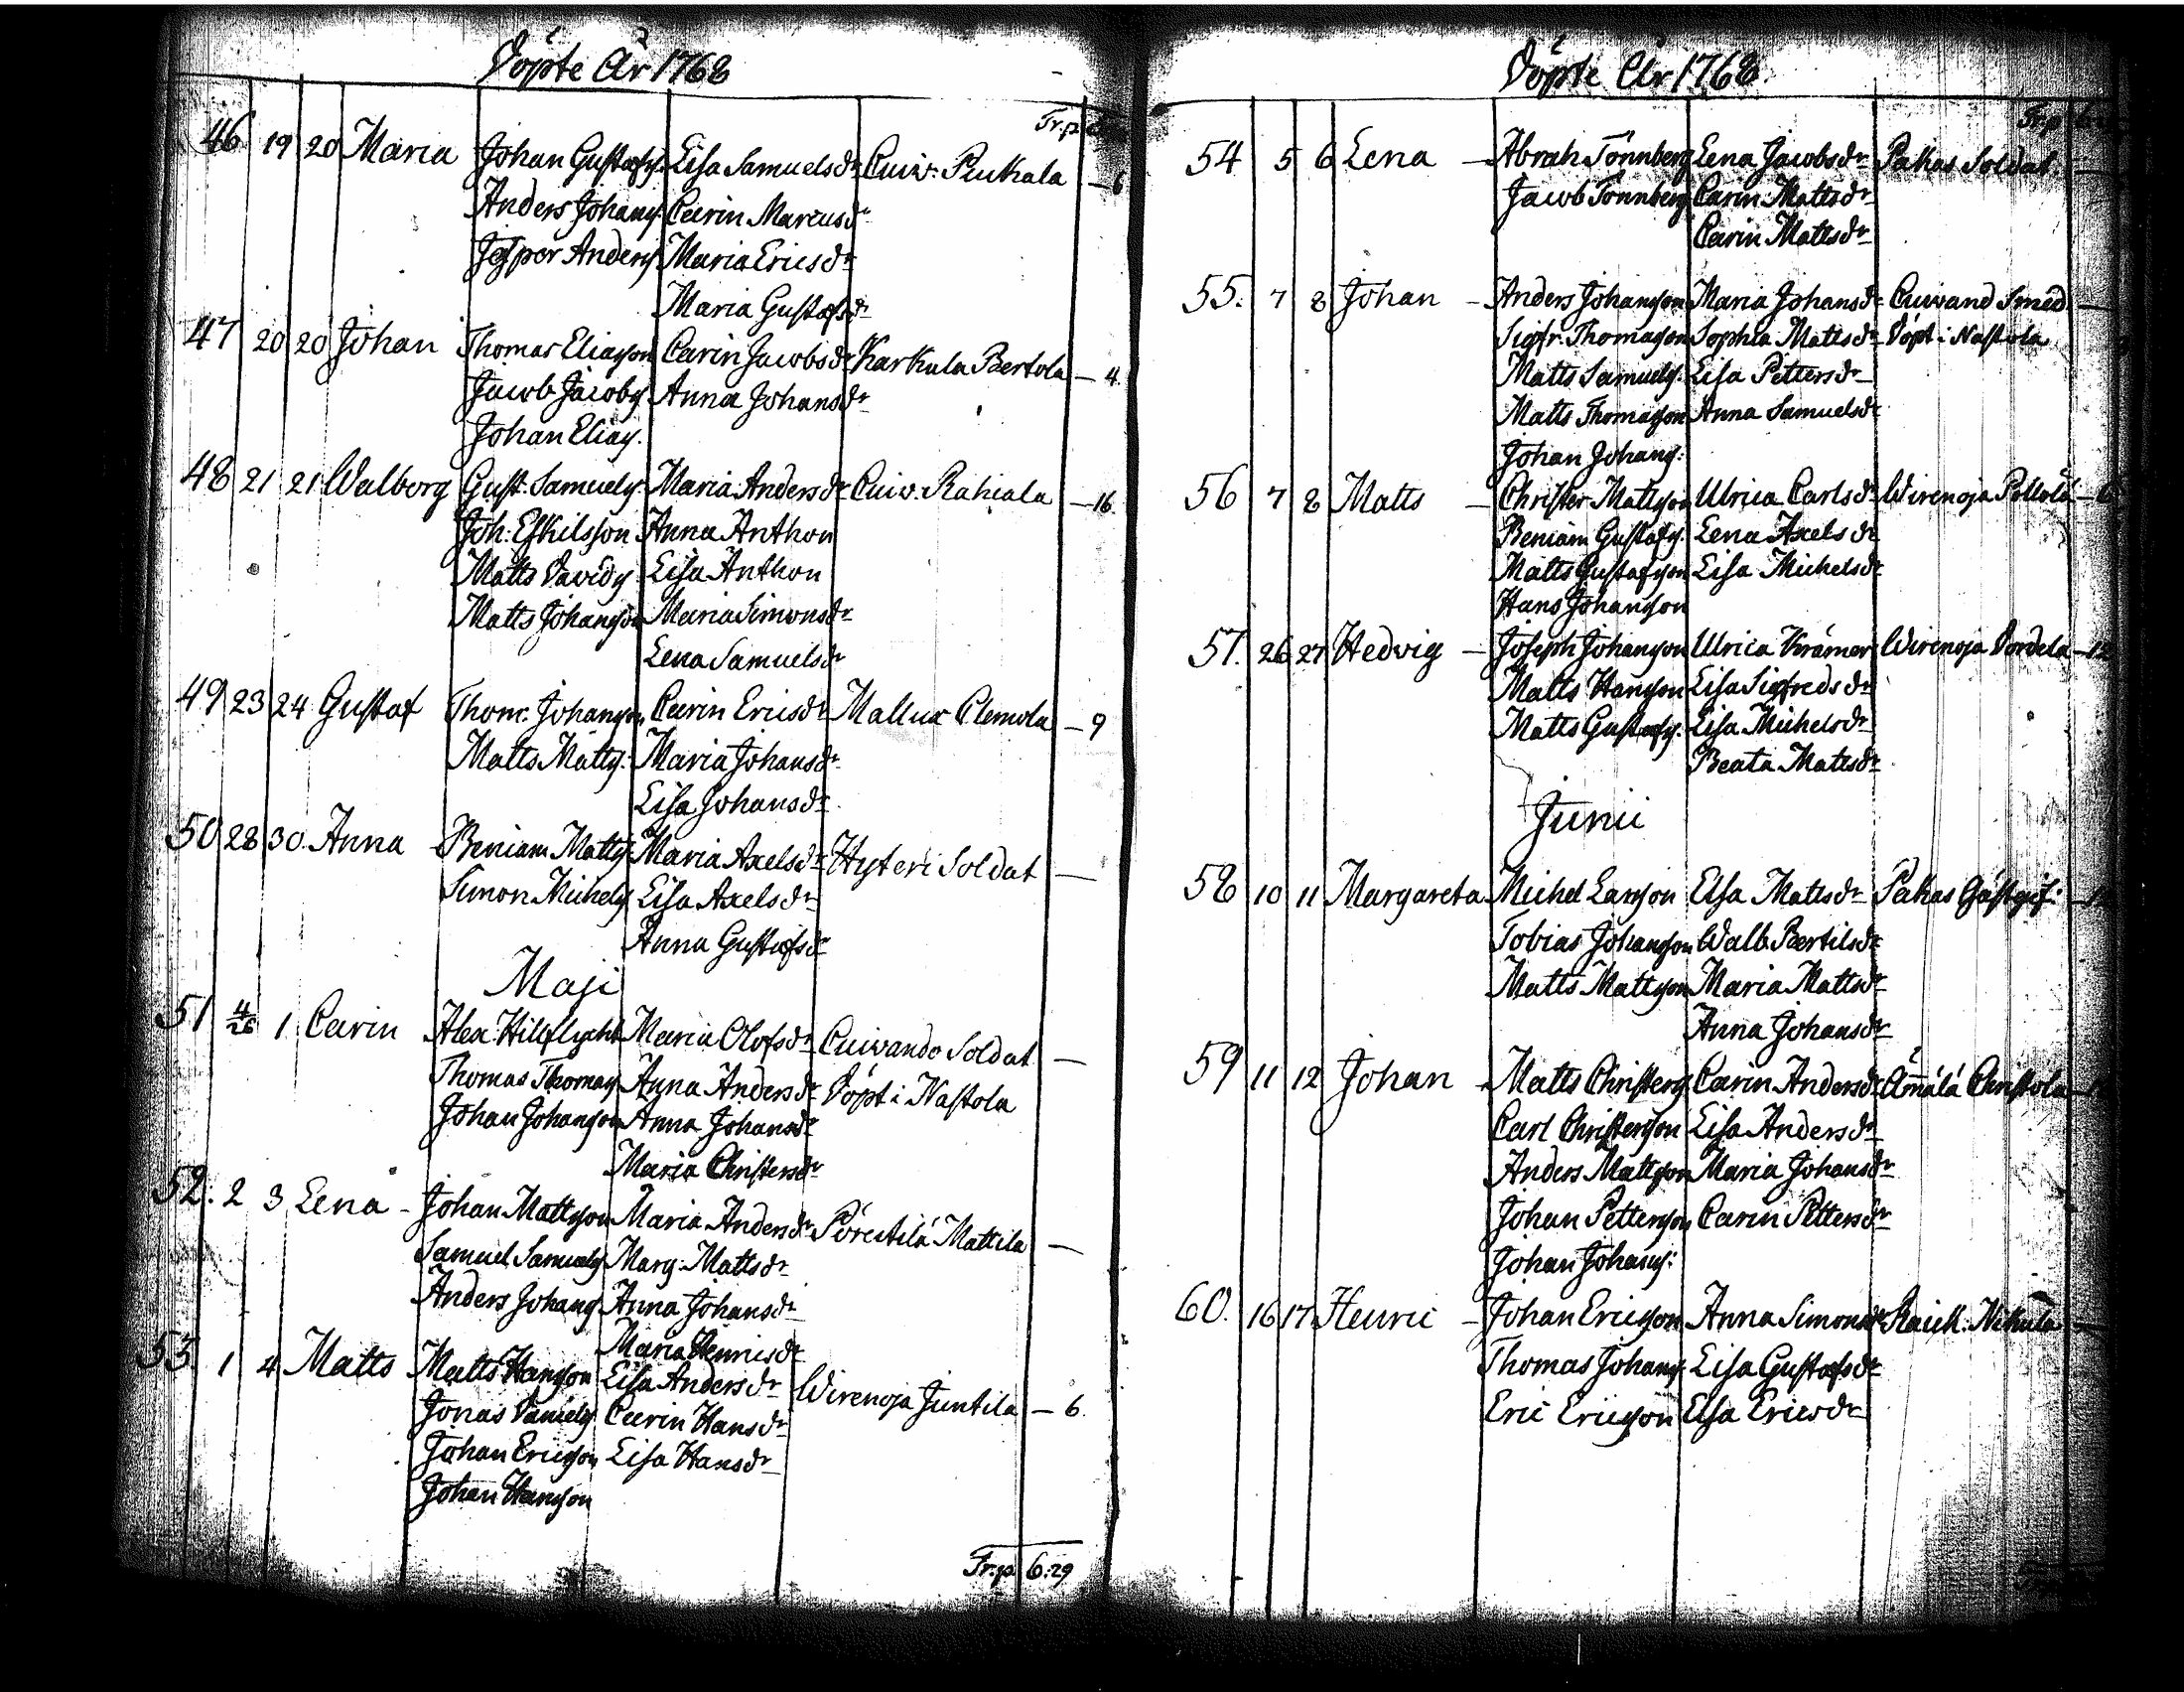 Döpte År 1768
Tr.p.
46 19 20 Maria Johan Gustafs. Lisa Samuelsdr Cuiv. Pukala — 6
Anders Johans. Carin Marcusdr
Jesper Anders. Maria Ericsdr
Maria Gustafsdr
47 20 20 Johan Thomas Eliasson Carin Jacobsdr Karkula Bertola — 4.
Jacob Jacobs. Anna Johansdr
Johan Elias.
48 21 21 Walborg Gust. Samuels. Maria Andersdr Cuiv. Rahiala — 16.
Joh: Eskilsson Anna Anthon
Matts Davids. Lisa Anthon
Matts Johansson Maria Simonsdr
Lena Samuelsdr
49 23 24 Gustaf Thom. Johansson Carin Ericsdr Mallux Clemola — 9
Matts Matts. Maria Johansdr
Lisa Johansdr
50 28 30 Anna Beniam Matts. Maria Axelsdr Hysteri Soldat —
Simon Michels. Lisa Axelsdr
Anna Gustafsdr
Maji
51 4/26 1 Carin Alex. Hillflycht Maria Olofsdr Cuivando Soldat —
Thomas Thomas. Anna Andersdr Döpt i Nastola
Johan Johansson Anna Johansdr
Maria Christersdr
52. 2 3 Lena - Johan Mattsson Maria Andersdr Pörestilä Mattila —
Samuel Samuels. Marg. Mattsdr
Anders Johans. Anna Johansdr
Maria Henricsdr
53 1 4 Matts Matts Hansson Lisa Andersdr Wirenoja Juntila — 6.
Jonas Daniels. Carin Hansdr
Johan Ericsson Lisa Hansdr
Johan Hansson
Tr.p. 6:29
Döpte År 1768
Tr.p. 6:
54 5 6 Lena — Abrah Tönnberg Lena Jacobsdr Pakas Soldat. —
Jacob Tönnberg Carin Mattsdr
Carin Mattsdr
55. 7 8 Johan — Anders Johansson Maria Johansdr Cuivand Smed —
Sigfr. Thomasson Sophia Mattsdr Döpt i Nastola
Matts Samuels. Lisa Pettersdr
Matts Thomasson Anna Samuelsdr
Johan Johans:
56 7 8 Matts — Christer Mattsson Ulrica Carlsdr Wirenoja Pollola — 6
Beniam Gustafs. Lena Axelsdr
Matts Gustafsson Lisa Michelsdr
Hans Johansson
57. 26 27 Hedvig — Joseph Johansson Ulrica Krämer Wirenoja Dordela — 12
Matts Hansson Lisa Sigfredsdr
Matts Gustafs. Lisa Michelsdr
Beata Mattsdr
Junii
58 10 11 Margareta Michel Larsson Elsa Mattsdr Pakas Gästgif:
Tobias Johansson Walb. Bertilsdr
Matts Mattsson Maria Mattsdr
Anna Johansdr
59 11 12 Johan — Matts Christers. Carin Andersdr Åmälä Christola
Carl Christersson Lisa Andersdr
Anders Mattsson Maria Johansdr
Johan Pettersson Carin Pettersdr
Johan Johans:
60. 16 17 Henric — Johan Ericsson Anna Simonsdr Raick. Nikula —
Thomas Johans. Lisa Gustafsdr
Eric Ericsson Elsa Ericsdr